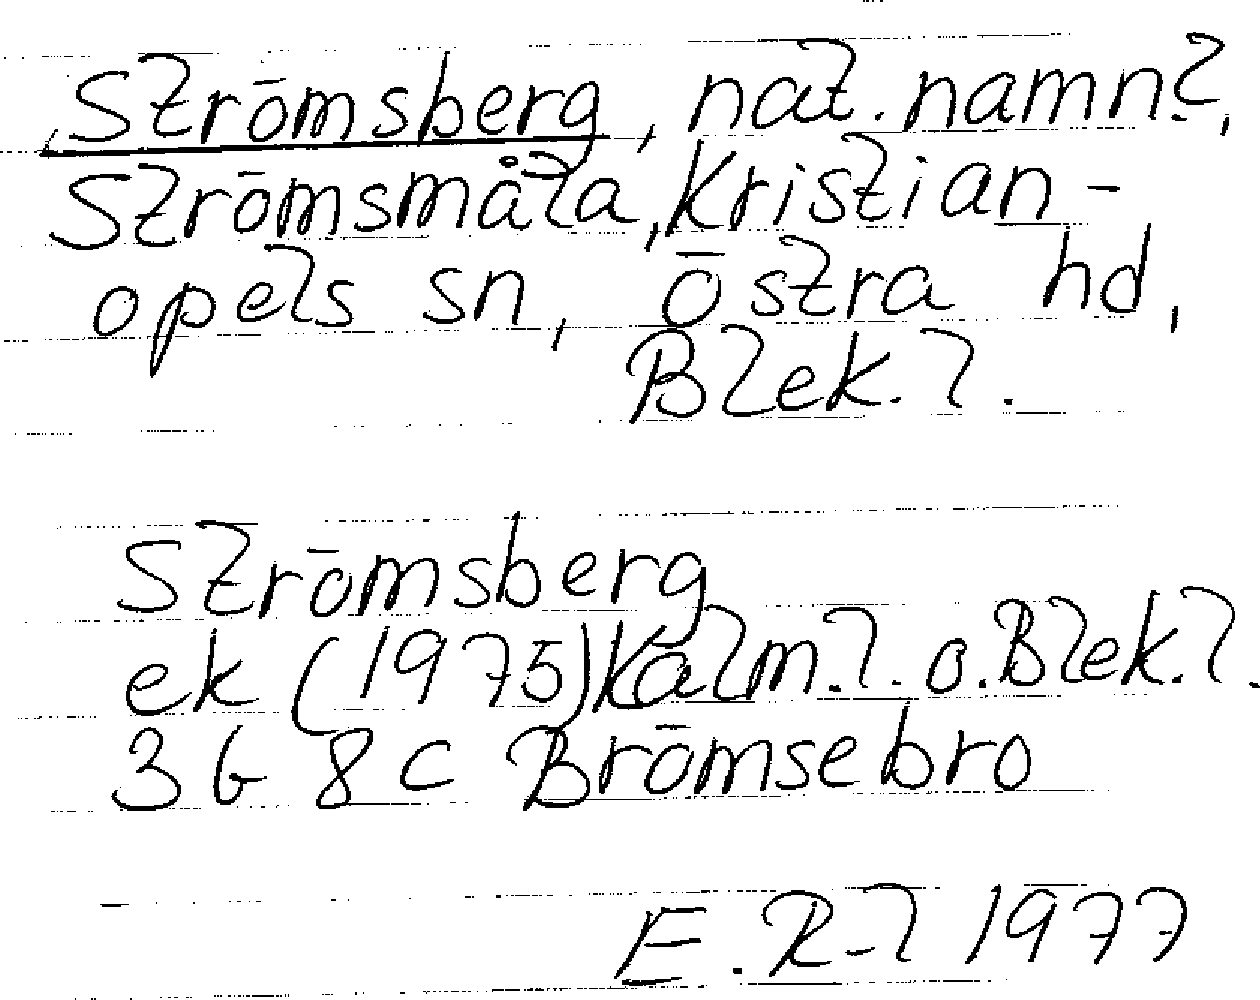 Strömsberg, nat. namn?,
Strömsmåla, Kristian-
opels sn, östra hd,
Blek. l.
Strömsberg
ek (1975) Kalm. l. o. Blek. l.
3 G 8 c Brömsebro
E. R-l 1977